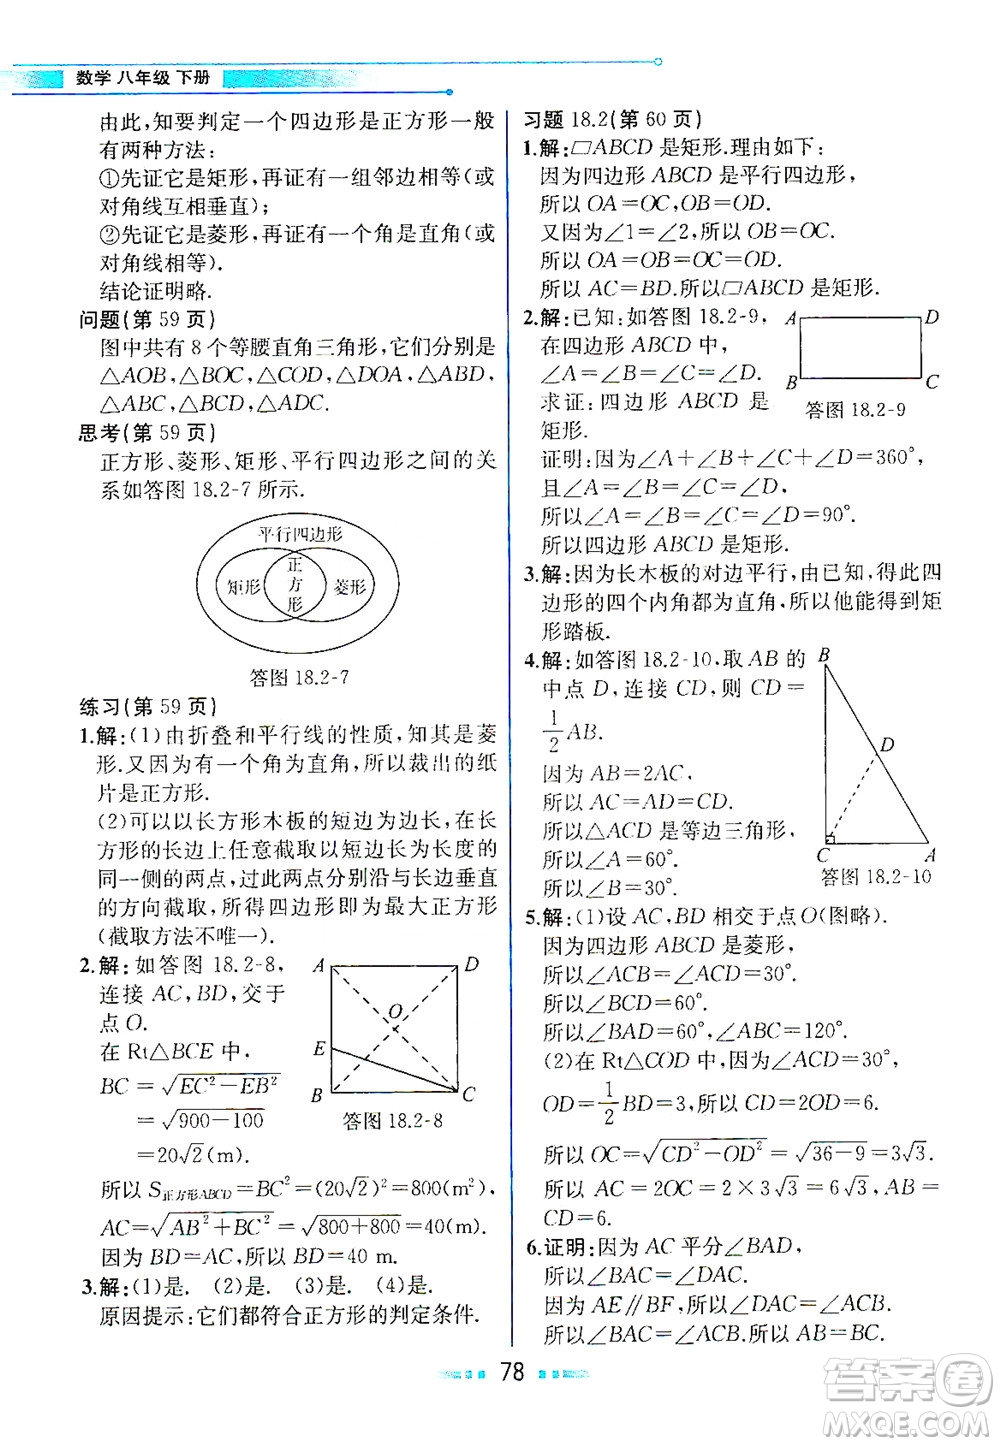 数学 八年级 下册
由此,知要判定一个四边形是正方形一般
有两种方法:
①先证它是矩形,再证有一组邻边相等(或
对角线互相垂直);
②先证它是菱形,再证有一个角是直角(或
对角线相等).
结论证明略.
问题(第 59 页)
图中共有 8 个等腰直角三角形,它们分别是
△AOB,△BOC,△COD,△DOA,△ABD,
△ABC,△BCD,△ADC.
思考(第 59 页)
正方形、菱形、矩形、平行四边形之间的关
系如答图 18.2-7 所示.
平行四边形
矩形
正方形
菱形
答图 18.2-7
练习(第 59 页)
1.解:(1)由折叠和平行线的性质,知其是菱
形.又因为有一个角为直角,所以裁出的纸
片是正方形.
(2)可以以长方形木板的短边为边长,在长
方形的长边上任意截取以短边长为长度的
同一侧的两点,过此两点分别沿与长边垂直
的方向截取,所得四边形即为最大正方形
(截取方法不唯一).
2.解:如答图 18.2-8,
连接 AC,BD,交于
点 O.
在 Rt△BCE 中,
BC=√(EC²-EB²)
=√(900-100)
=20√2(m).
A
D
O
E
B
C
答图 18.2-8
所以 S正方形ABCD=BC²=(20√2)²=800(m²),
AC=√(AB²+BC²)=√(800+800)=40(m).
因为 BD=AC,所以 BD=40 m.
3.解:(1)是. (2)是. (3)是. (4)是.
原因提示:它们都符合正方形的判定条件.
习题 18.2(第 60 页)
1.解:□ABCD 是矩形.理由如下:
因为四边形 ABCD 是平行四边形,
所以 OA=OC,OB=OD.
又因为∠1=∠2,所以 OB=OC.
所以 OA=OB=OC=OD.
所以 AC=BD.所以□ABCD 是矩形.
2.解:已知:如答图 18.2-9,
在四边形 ABCD 中,
∠A=∠B=∠C=∠D.
求证:四边形 ABCD 是
矩形.
A
D
B
C
答图 18.2-9
证明:因为∠A+∠B+∠C+∠D=360°,
且∠A=∠B=∠C=∠D,
所以∠A=∠B=∠C=∠D=90°.
所以四边形 ABCD 是矩形.
3.解:因为长木板的对边平行,由已知,得此四
边形的四个内角都为直角,所以他能得到矩
形踏板.
4.解:如答图 18.2-10,取 AB 的
中点 D,连接 CD,则 CD=
1/2 AB.
因为 AB=2AC,
所以 AC=AD=CD.
所以△ACD 是等边三角形,
所以∠A=60°.
所以∠B=30°.
B
D
C
A
答图 18.2-10
5.解:(1)设 AC,BD 相交于点 O(图略).
因为四边形 ABCD 是菱形,
所以∠ACB=∠ACD=30°.
所以∠BCD=60°.
所以∠BAD=60°,∠ABC=120°.
(2)在 Rt△COD 中,因为∠ACD=30°,
OD=1/2 BD=3,所以 CD=2OD=6.
所以 OC=√(CD²-OD²)=√(36-9)=3√3.
所以 AC=2OC=2×3√3=6√3,AB=
CD=6.
6.证明:因为 AC 平分∠BAD,
所以∠BAC=∠DAC.
因为 AE∥BF,所以∠DAC=∠ACB.
所以∠BAC=∠ACB.所以 AB=BC.
78
答案圈
MXQE.COM